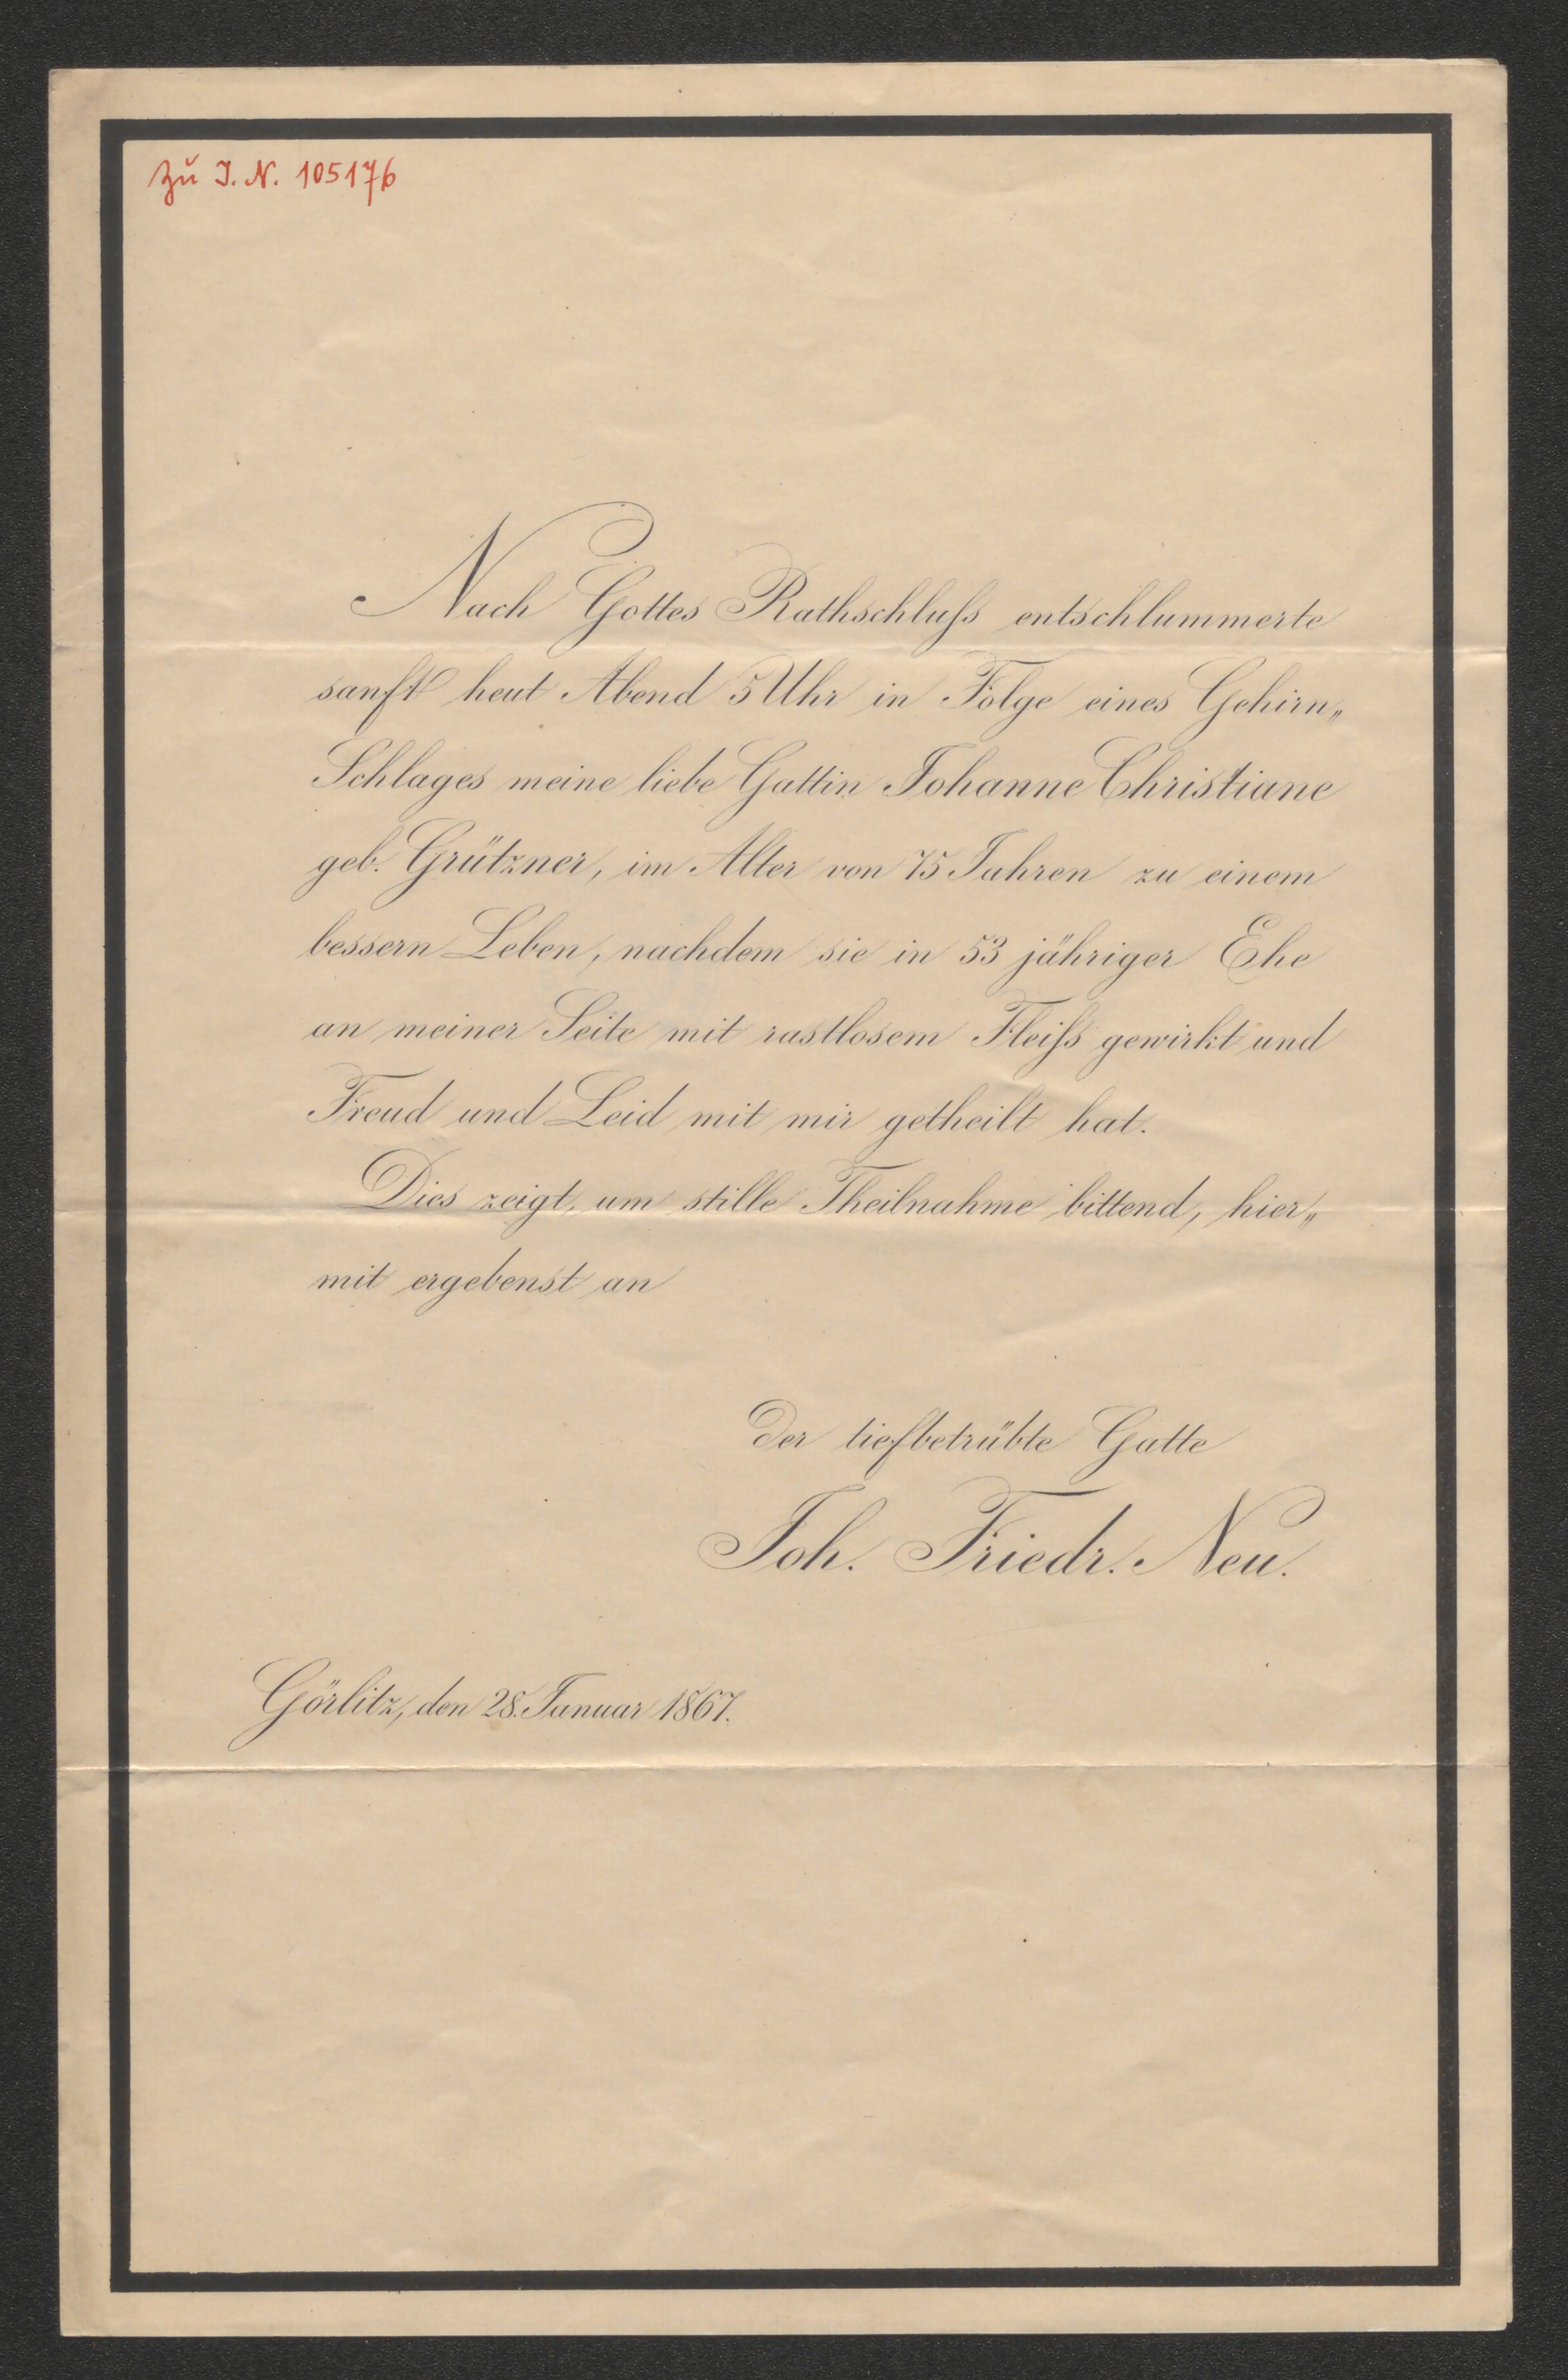 Zu I. N. 105176
Nach Gottes Rathschluſs entschlummerte
sanft heut Abend 5 Uhr in Folge eines Gehirn„
Schlages meine liebe Gattin Johanne Christiane
geb. Grützner, im Alter von 75 Jahren zu einem
bessern Leben, nachdem sie in 53 jähriger Ehe
an meiner Seite mit rastlosem Fleiſs gewirkt und
Freud und Leid mit mir getheilt hat.
Dies zeigt, um stille Theilnahme bittend, hier„
mit ergebenst an
Der tiefbetrübte Gatte
Joh. Friedr. Neu.
Görlitz, den 28. Januar 1867.